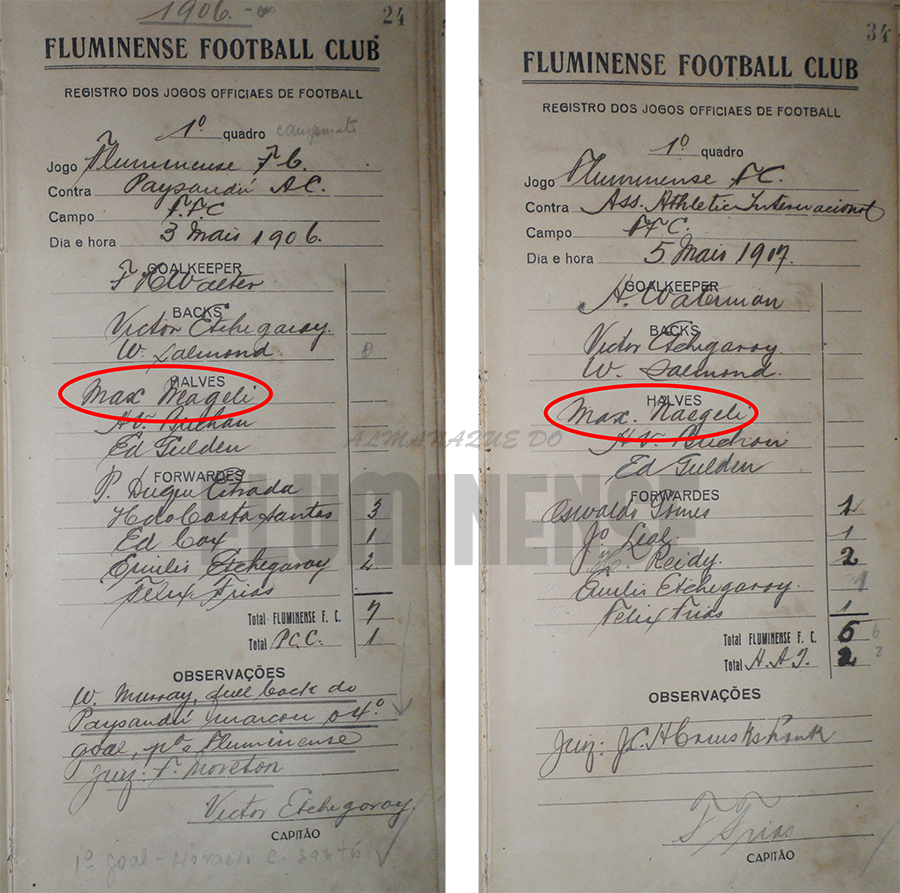 1906
24
FLUMINENSE FOOTBALL CLUB
REGISTRO DOS JOGOS OFFICIAES DE FOOTBALL
1º quadro
Jogo Fluminense F C.
Contra Paysandú A C.
Campo F.F.C
Dia e hora 3 Maio 1906.
GOALKEEPER
F H Walter
BACKS
Victor Etchegaray.
W. Salmond
HALVES
Max Mageli
H V. Buchan
Ed Gulden
FORWARDES
P. Duque Estrada
H da Costa Santos 3
Ed Cox 1
Emilio Etchegaray 2
Félix Frias
Total FLUMINENSE F. C. 7
Total P.C.C. 1
OBSERVAÇÕES
W. Murray, full back do
Paysandú marcou o 4º
goal, pº o Fluminense
Juiz: F. Moreton
Victor Etchegaray.
CAPITÃO
1º goal - Horacio C. Santos
34
FLUMINENSE FOOTBALL CLUB
REGISTRO DOS JOGOS OFFICIAES DE FOOTBALL
1º quadro
Jogo Fluminense F C.
Contra Ass. Athletic Internacional
Campo F F C.
Dia e hora 5 Maio 1907.
GOALKEEPER
A. Waterman
BACKS
Victor Etchegaray
W. Salmond.
HALVES
Max. Naegeli
H V. Buchan
Ed Gulden
FORWARDES
Oswaldo Gomes 1
Jº Leal 1
Reidy. 2
Emilio Etchegaray. 1
Félix Frias 1
Total FLUMINENSE F. C. 6 6
Total A.A.I. 2 2
OBSERVAÇÕES
Juiz:
F Frias
CAPITÃO
ALMANAQUE DO
FLUMINENSE